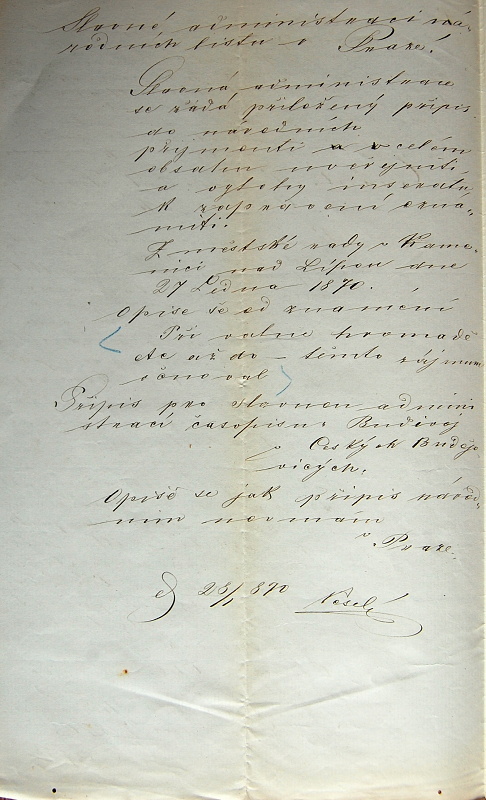 Slavné administraci ná-
rodních listů v Praze!
Slavná administrace
se žádá přiložený přípis
do národních
přijmouti a v celém
obsahu uveřejniti
a výlohy inserátu
k zapravení ozná-
miti.
Z městské rady v Kame-
nici nad Lípou dne
27 Ledna 1870.
Opíše se od znamení
Při valné hromadě
etc až do – těmto zájmům
Přípis pro slavnou admini
straci časopisu Budivoj
v Českých Budějo-
vicích.
Opíše se jak přípis národ-
ním novinám
v Praze.
28/1 870